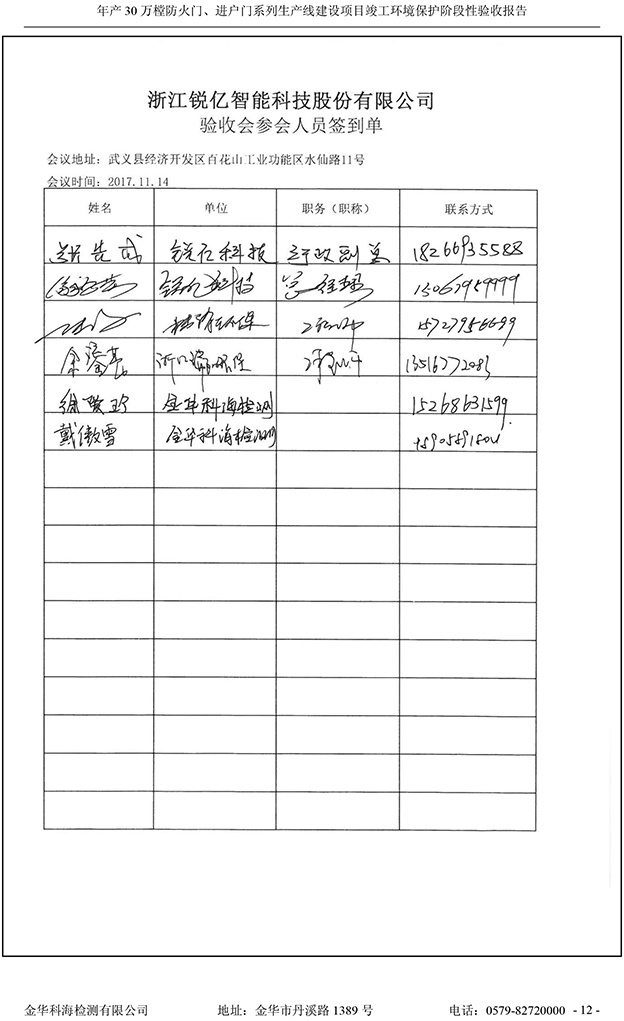 年产 30 万樘防火门、进户门系列生产线建设项目竣工环境保护阶段性验收报告
浙江锐亿智能科技股份有限公司
验收会参会人员签到单
会议地址：武义县经济开发区百花山工业功能区水仙路11号
会议时间：2017.11.14
姓名 单位 职务（职称） 联系方式
锐亿科技 行政副总 18266935588
锐亿科技 总经理 13067959999
环保 工程师 15727956699
浙江 环保 工程师 13516772083
徐 金华科海检测 15268631599
戴傲雪 金华科海检测
金华科海检测有限公司 地址：金华市丹溪路 1389 号 电话：0579-82720000 - 12 -